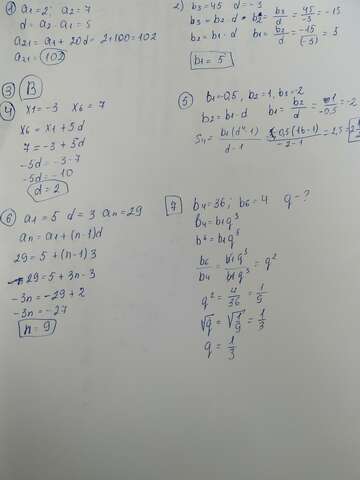 ① a₁=2; a₂=7
d=a₂ a₁=5
a₂₁=a₁+20d=2+100=102
a₂₁=102
2) b₃=45 d=-3
b₃=b₂·d b₂ = b₃/d = 45/-3 = -15
b₂=b₁·d b₁= b₂/d = -15/(-3) = 5
b₁=5
③ B
④ x₁=-3 x₆=7
x₆=x₁+5d
7=-3+5d
-5d=-3-7
-5d=-10
d=2
⑤ b₁=-0,5, b₂=1, b₃=-2
b₂=b₁·d b₁= b₂/d = 1/-0,5 = -2
S₄= b₁(d⁴-1)/d-1 -0,5(16-1)/-2-1 =2,5=2
⑥ a₁=5 d=3 aₙ=29
aₙ=a₁+(n-1)d
29=5+(n-1)3
29=5+3n-3
-3n=-29+2
-3n=-27
n=9
7 b₄=36; b₆=4 q-?
b₄=b₁q³
b⁶=b₁q⁵
b₆/b₄ = b₁q⁵/b₁q³ = q²
q²= 4/36 = 1/9
√q=√1/9 = 1/3
q= 1/3